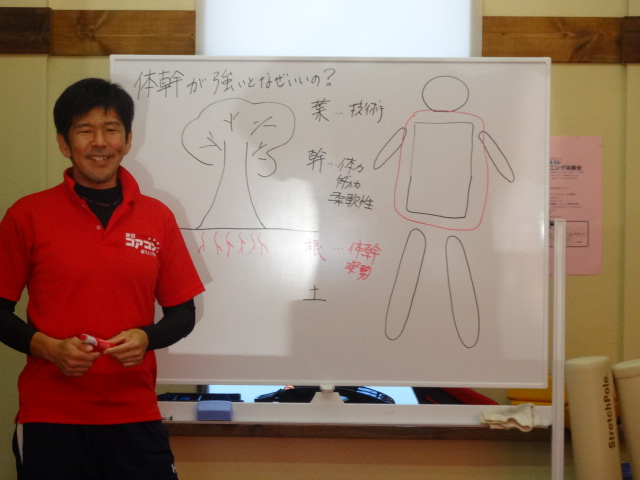 体幹が強いとなぜいいの?
葉…技術
幹…体力
筋力
柔軟性
根…体幹
姿勢
土
コアコン
StretchPole